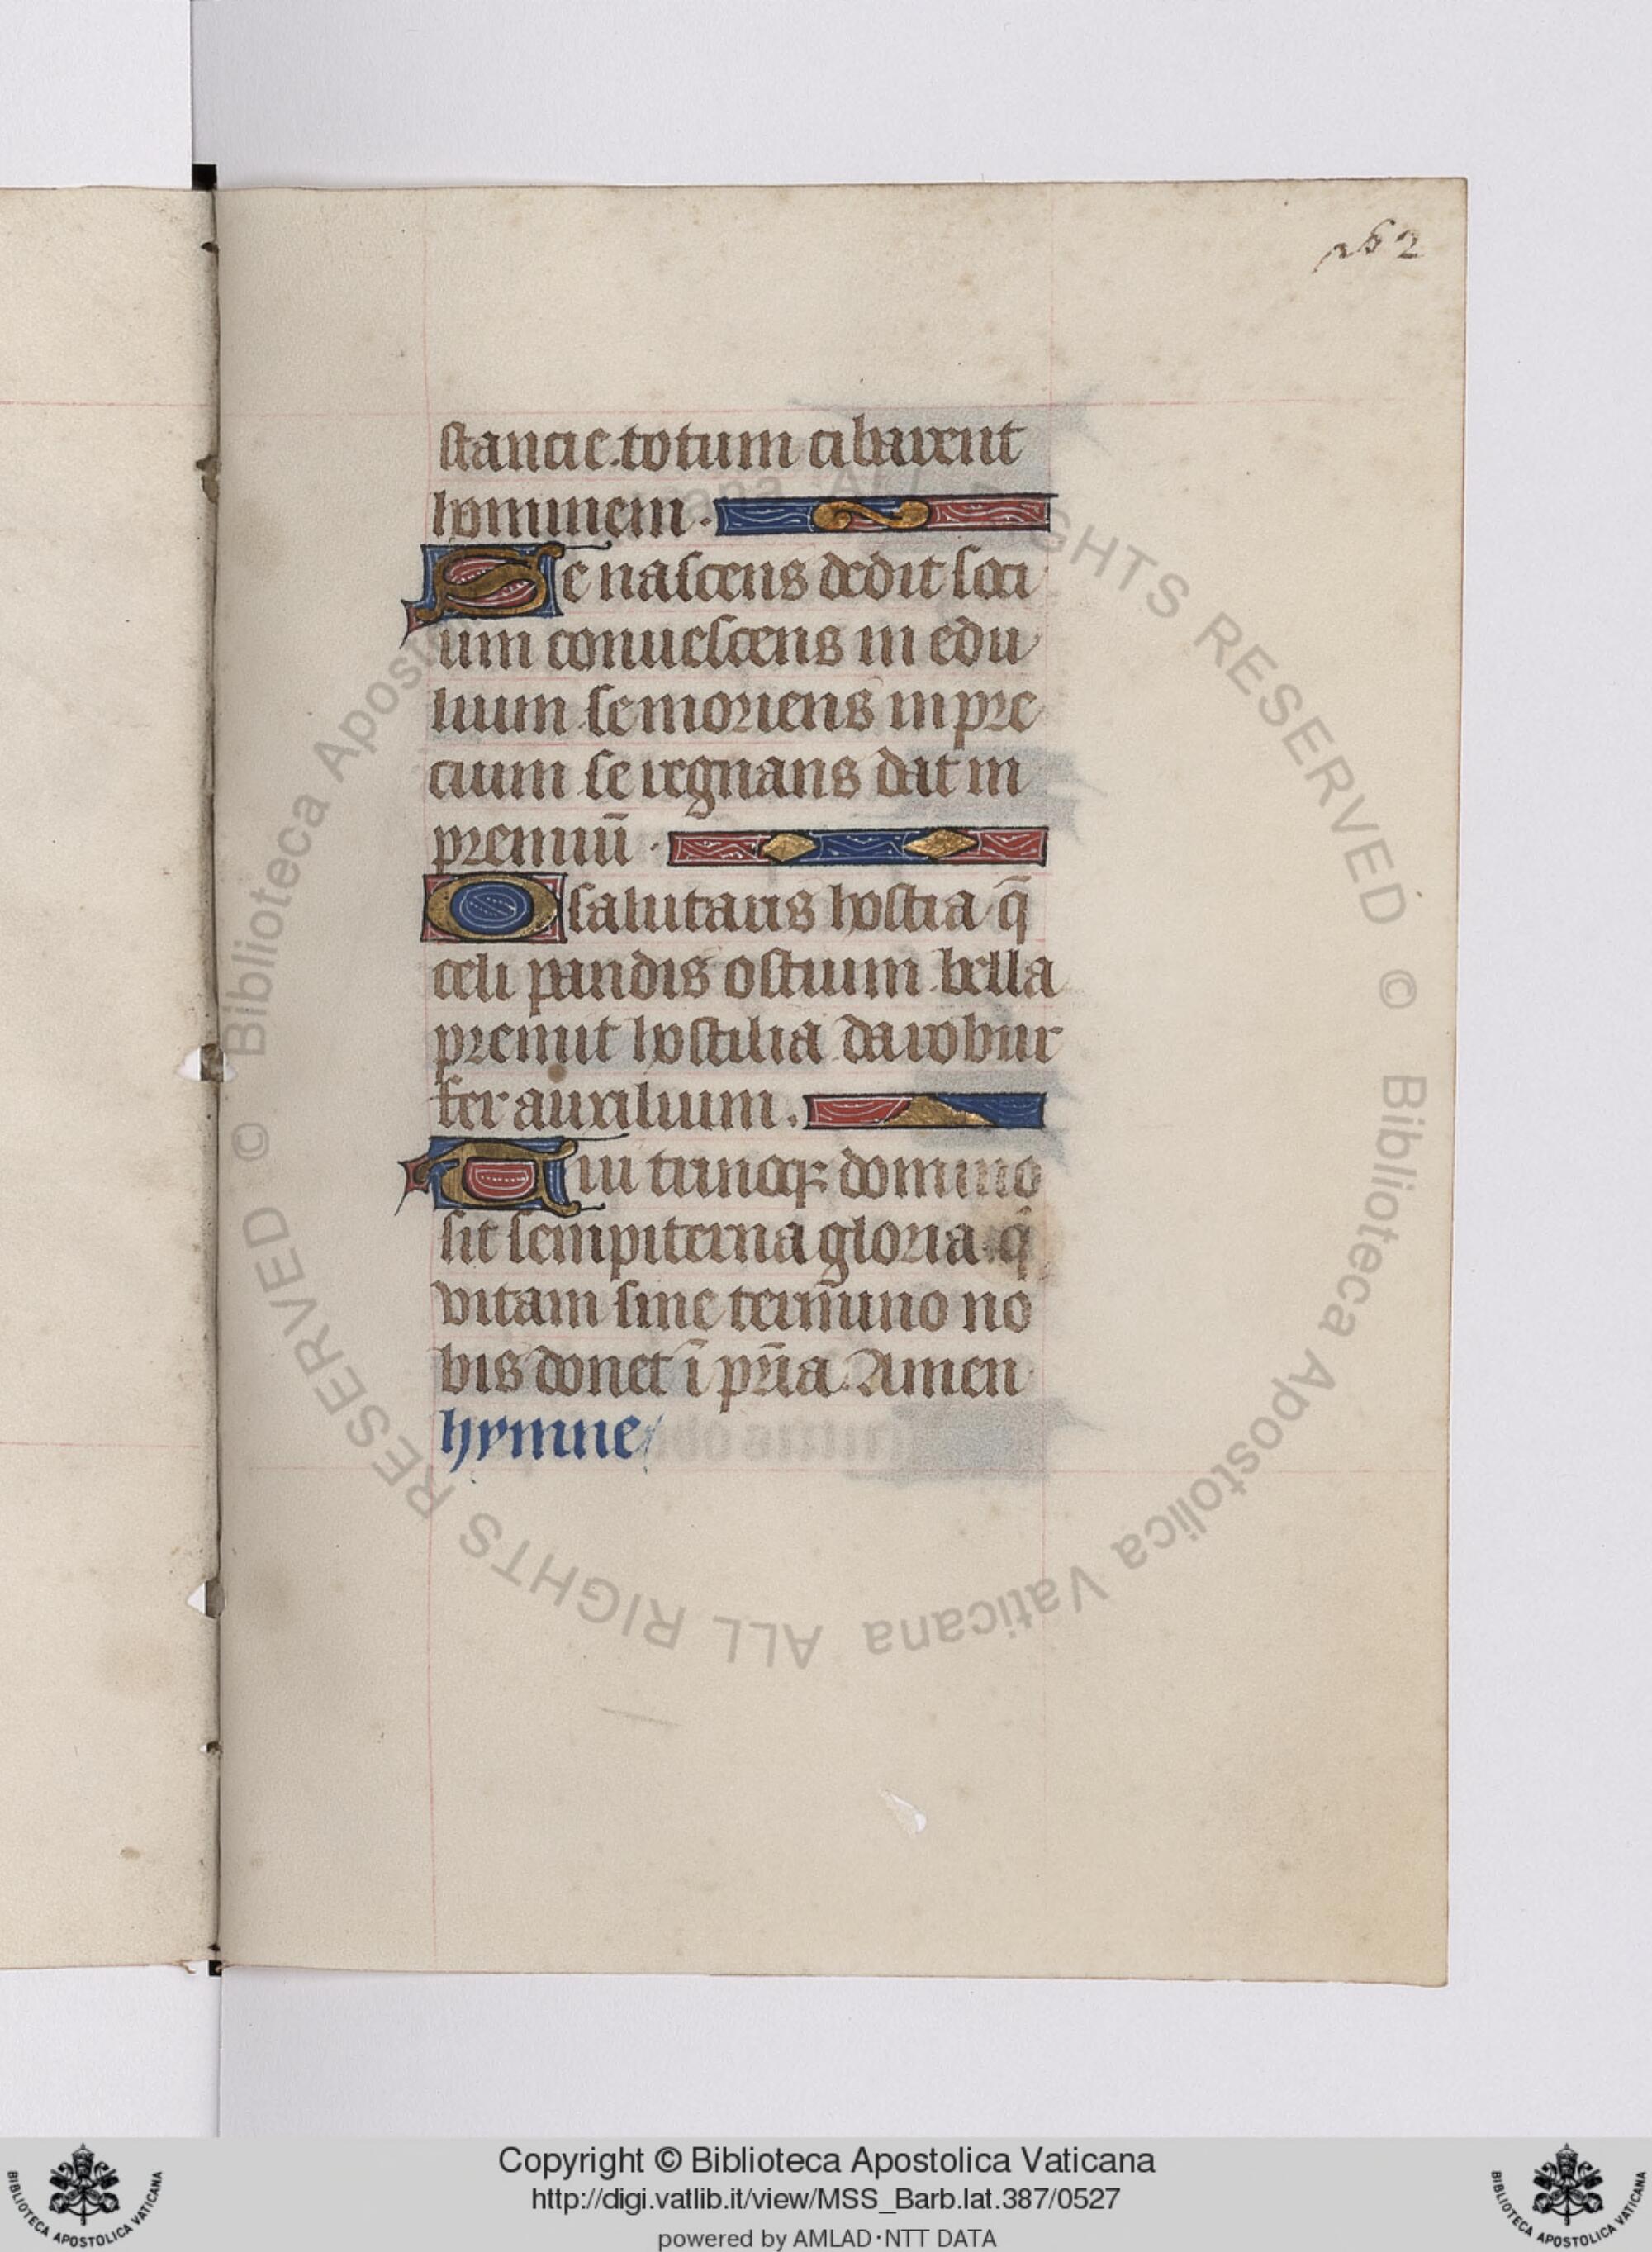 262
stancie. totum cibarent
hominem.
Se nascens dedit soci
um conuescens in edu
lium se moriens in pre
cium se regnans dat in
premiū.
O salutaris hostia q̄
celi pandis ostium bella
premut hostilia da robur
fer auxilium.
Uni trinoq; domino
sit sempiterna gloria. q̇
vitam sine termino no
bis donet ī pr̄ia. Amen
hymne
© Biblioteca Apostolica Vaticana ALL RIGHTS RESERVED © Biblioteca Apostolica Vaticana ALL RIGHTS RESERVED
Copyright © Biblioteca Apostolica Vaticana
http://digi.vatlib.it/view/MSS_Barb.lat.387/0527
powered by AMLAD·NTT DATA
BIBLIOTECA APOSTOLICA VATICANA
BIBLIOTECA APOSTOLICA VATICANA